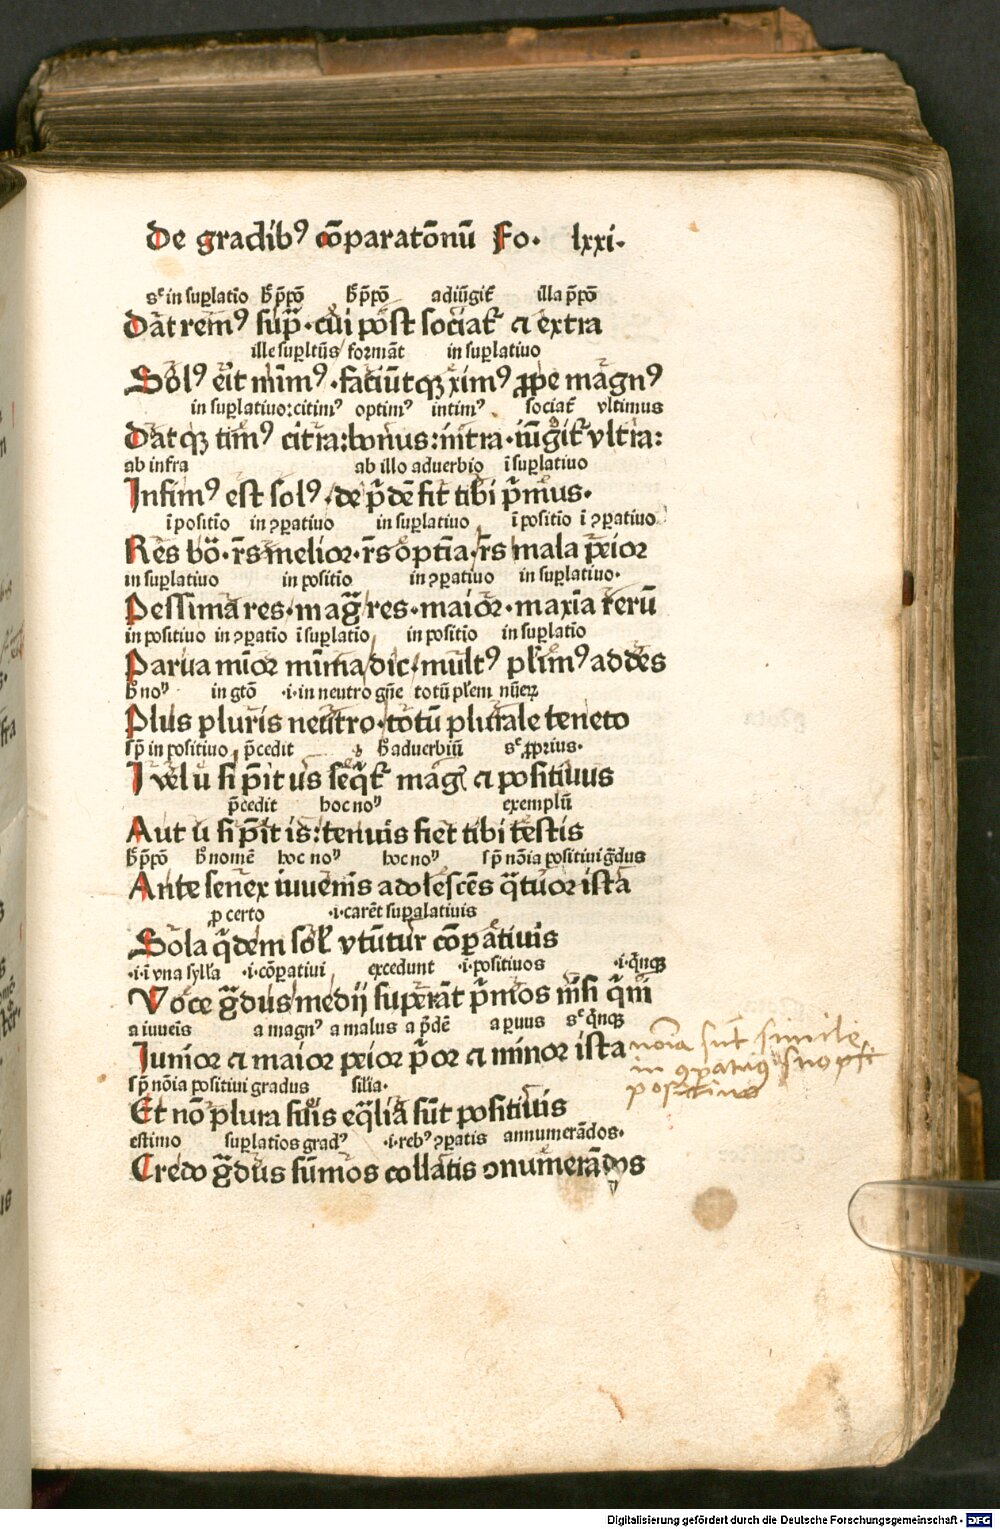 De gradibꝰ cōparatōnū Fo. lxxi.
sꝫ in suꝑlatio h̄ p̄pō h̄ p̄pō adiūgit̄ illa p̄pō
Dat remꝰ sup̄. cui post sociat̄ ⁊ extra
ille suꝑltūs formāt in suꝑlatiuo
Solꝰ erit mīmꝰ. faciūtqꝫ ximꝰ ꝓpe magnꝰ
in suꝑlatiuo: citimꝰ optimꝰ intimꝰ. sociat̄ vltimus
Datqꝫ timꝰ citra: bonus: intra. iūgit̄ vltra:
ab infra ab illo aduerbio ī suꝑlatiuo
Infimꝰ est solꝰ. de p̄dē fit tibi p̄mus.
ī positio in ꝯꝑatiuo in suꝑlatiuo ī positio ī ꝯꝑatiuo
Res bō. r̄s melior. r̄s optīa. r̄s mala peior
in suꝑlatiuo in positio in ꝯꝑatiuo in suꝑlatiuo.
Pessima res. maḡ res. maior. maxīa rerū
in positiuo in ꝯꝑatio ī suꝑlatio in positio in suꝑlatio
Parua mīor mīma dic. multꝰ pl̄imꝰ addes
h̄ noᵘ in gtō .i. in neutro gn̄e totū pl̄em nūeꝝ
Plus pluris neutro. totū plurale teneto
sp̄ in positiuo p̄cedit h̄ aduerbiū sꝫ ꝓprius.
I vel u si p̄it us seq̄t̄ magꝭ ⁊ positiuus
p̄cedit hoc noᵘ exemplū
Aut u si p̄it is: tenuis fiet tibi testis
h̄ p̄pō h̄ nomē hoc noᵘ hoc noᵘ sp̄ nōia positiui gꝛ̄dus
Ante senex iuuenis adolescēs q̄tuor ista
ꝓ certo .i. carēt suꝑalatiuis
Sola q̄dem sol̄ vtūtur cōꝑatiuis
.i. ī vna sylla .i. cōꝑatiui excedunt .i. positiuos .i. q̄nqꝫ
Voce gꝛ̄dus medij superāt p̄mos nisi q̄nī
a iuueīs a magnꝰ a malus a p̄dē a ꝑuus sꝫ q̄nqꝫ
Iunior ⁊ maior peior p̄or ⁊ minor ista
nōia sūt simile
in ꝯꝑatiuo
positiuo
sp̄ nōia positiui gradus silia.
Et nō plura suis eq̄lia sūt positiuis
estimo suꝑlatios gradꝰ .i. rebꝰ ꝯꝑatis annumerādos.
Credo gꝛ̄dus sūmos collatis ꝯnumerādos
Digitalisierung gefördert durch die Deutsche Forschungsgemeinschaft - DFG